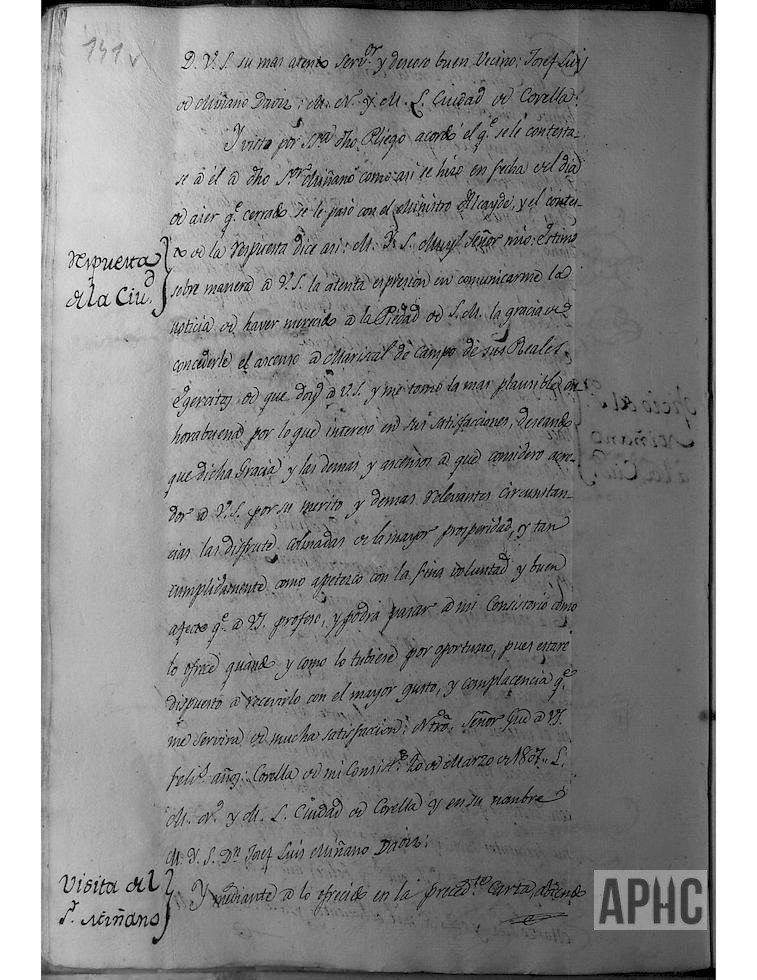 141v
D. V. S. su mas atento Servor. y deseoso buen Vecino: Josef Luis
de Miñano Daoiz: M. N. y M. L. Ciudad de Corella:
Y visto por Ssra dho Pliego acordó el qe. se le contesta-
se a él a dho Sor. Miñano como asi se hizo en fecha del dia
de aier qe. cerrado se le pasó con el Ministro Alcayde, y el conte-
do de la respuesta dice asi: M. Y. S. Muy Señor mio: estimo
sobre manera a V.S. la atenta espresion en comunicarme la
noticia de haver merecido a la Piedad de S. M. la gracia de
concederle el ascenso a Mariscal de Campo de sus Reales
Egercitos, de que doy a V.S. y me tomo la mas plausible en-
horabuena por lo que intereso en sus satisfacciones, deseando
que dicha Gracia y las demas y ascensos a que considero acre-
dor a V.S. por su merito y demas relevantes circunstan-
cias las disfrute colmadas de la mayor prosperidad, y tan
cumplidamente como apetezco con la fina voluntad y buen
afecto qe. a VS. profeso, y podrá pasar a mi Consistorio como
lo ofrece quando y como lo tubiere por oportuno, pues estaré
dispuesto a recevirlo con el mayor gusto, y complacencia qe.
me servirá de mucha satisfaccion: Ntro. Señor Gue a VS.
felis. años: Corella de mi Consisto. 20 de Marzo de 1807. L.
M. N. y M. L. Ciudad de Corella y en su nombre
M. Y. S. Dn Josef Luis Miñano Daoiz:
Y mediante a lo ofrecido en la precedte. Carta, abiendo
respuesta
de la Ciud.
Visita del
Sr. Miñano
APHC